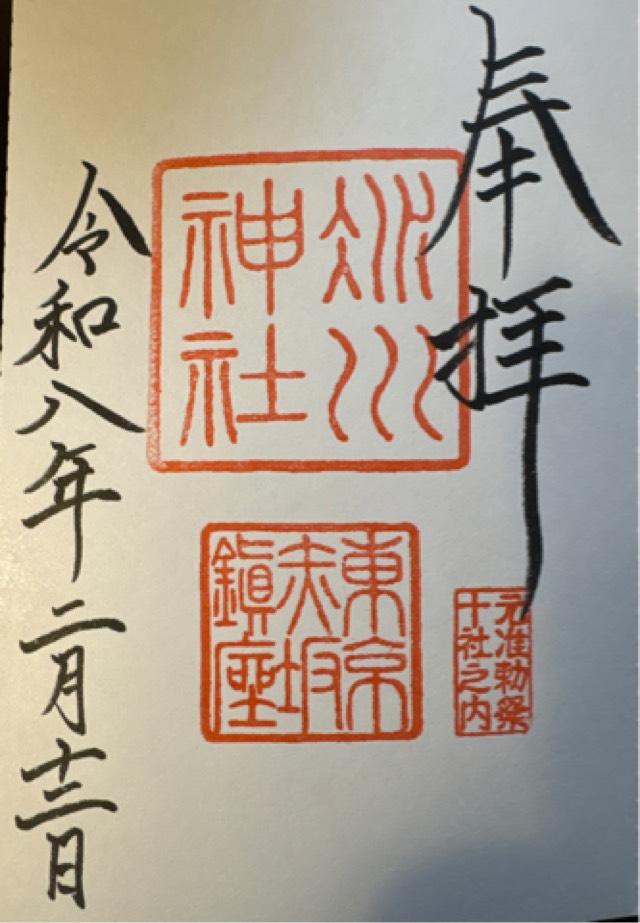 奉拝
元准勅祭
十社之内
氷川
神社
東京
赤坂
鎮座
令和八年二月十三日